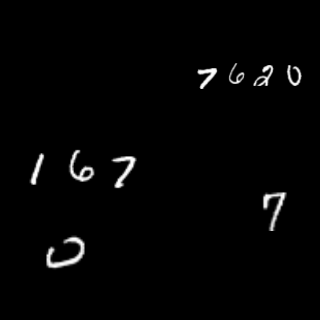 7620
167
7
0